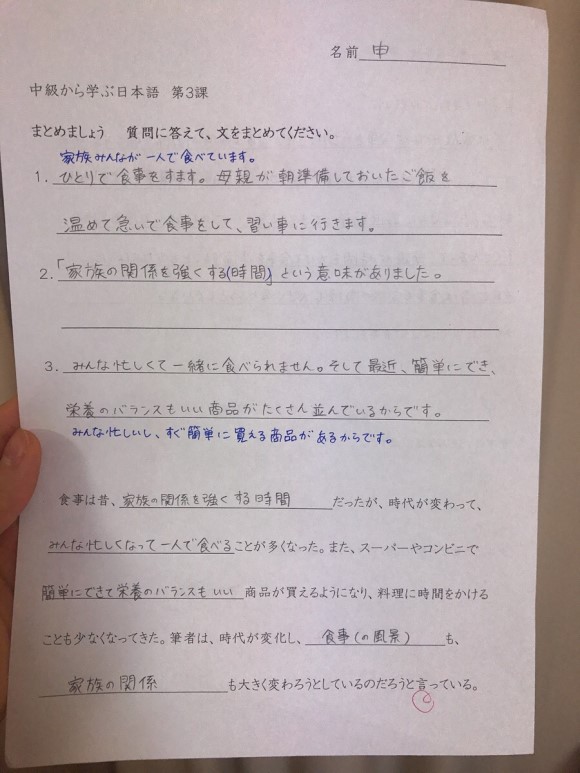 名前 申
中級から学ぶ日本語 第3課
まとめましょう 質問に答えて、文をまとめてください。
家族みんなが一人で食べています。
1. ひとりで食事をすます。母親が朝準備しておいたご飯を
温めて急いで食事をして、習い事に行きます。
2.「家族の関係を強くする(時間)」という意味がありました。
3. みんな忙しくて一緒に食べられません。そして最近、簡単にでき、
栄養のバランスもいい商品がたくさん並んでいるからです。
みんな忙しいし、すぐ簡単に買える商品があるからです。
食事は昔、家族の関係を強くする時間だったが、時代が変わって、
みんな忙しくなって一人で食べることが多くなった。また、スーパーやコンビニで
簡単にできて栄養のバランスもいい商品が買えるようになり、料理に時間をかける
ことも少なくなってきた。筆者は、時代が変化し、食事(の風景)も、
家族の関係も大きく変わろうとしているのだろうと言っている。